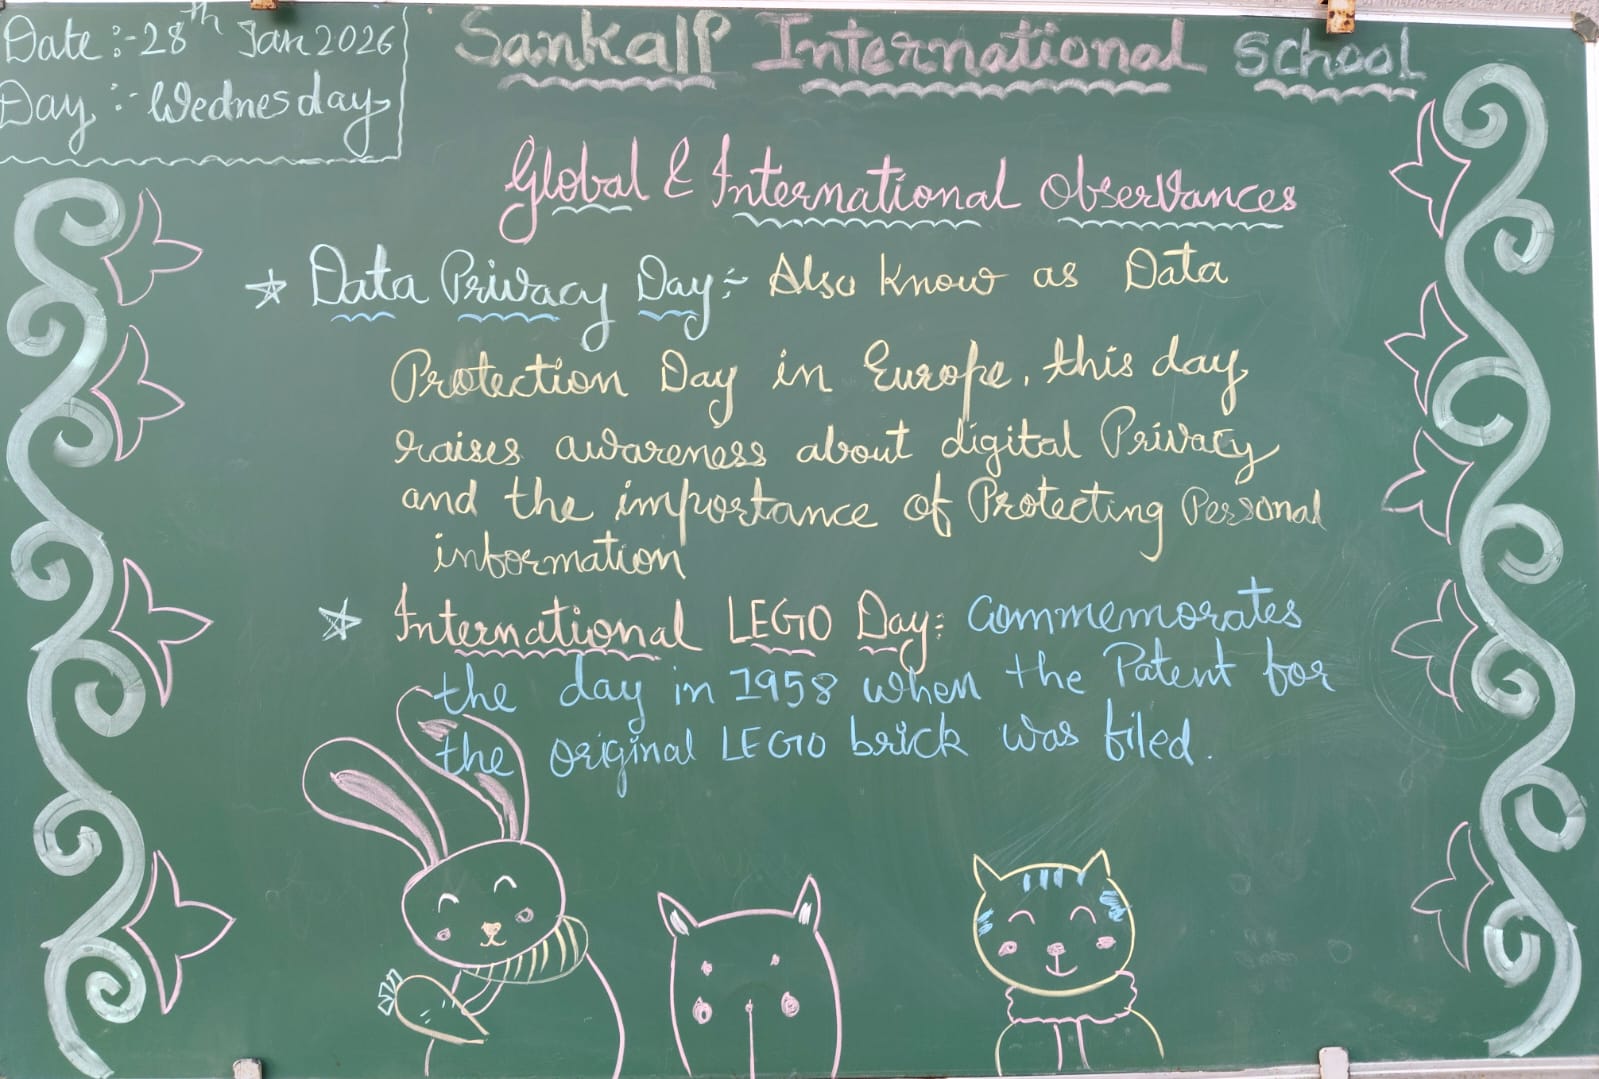 Date :- 28th Jan 2026
Day :- Wednesday
Sankalp International School
Global & International Observances
☆ Data Privacy Day :- Also know as Data
Protection Day in Europe, this day
raises awareness about digital Privacy
and the importance of Protecting Personal
information
☆ International LEGO Day: Commemorates
the day in 1958 when the Patent for
the original LEGO brick was filed.